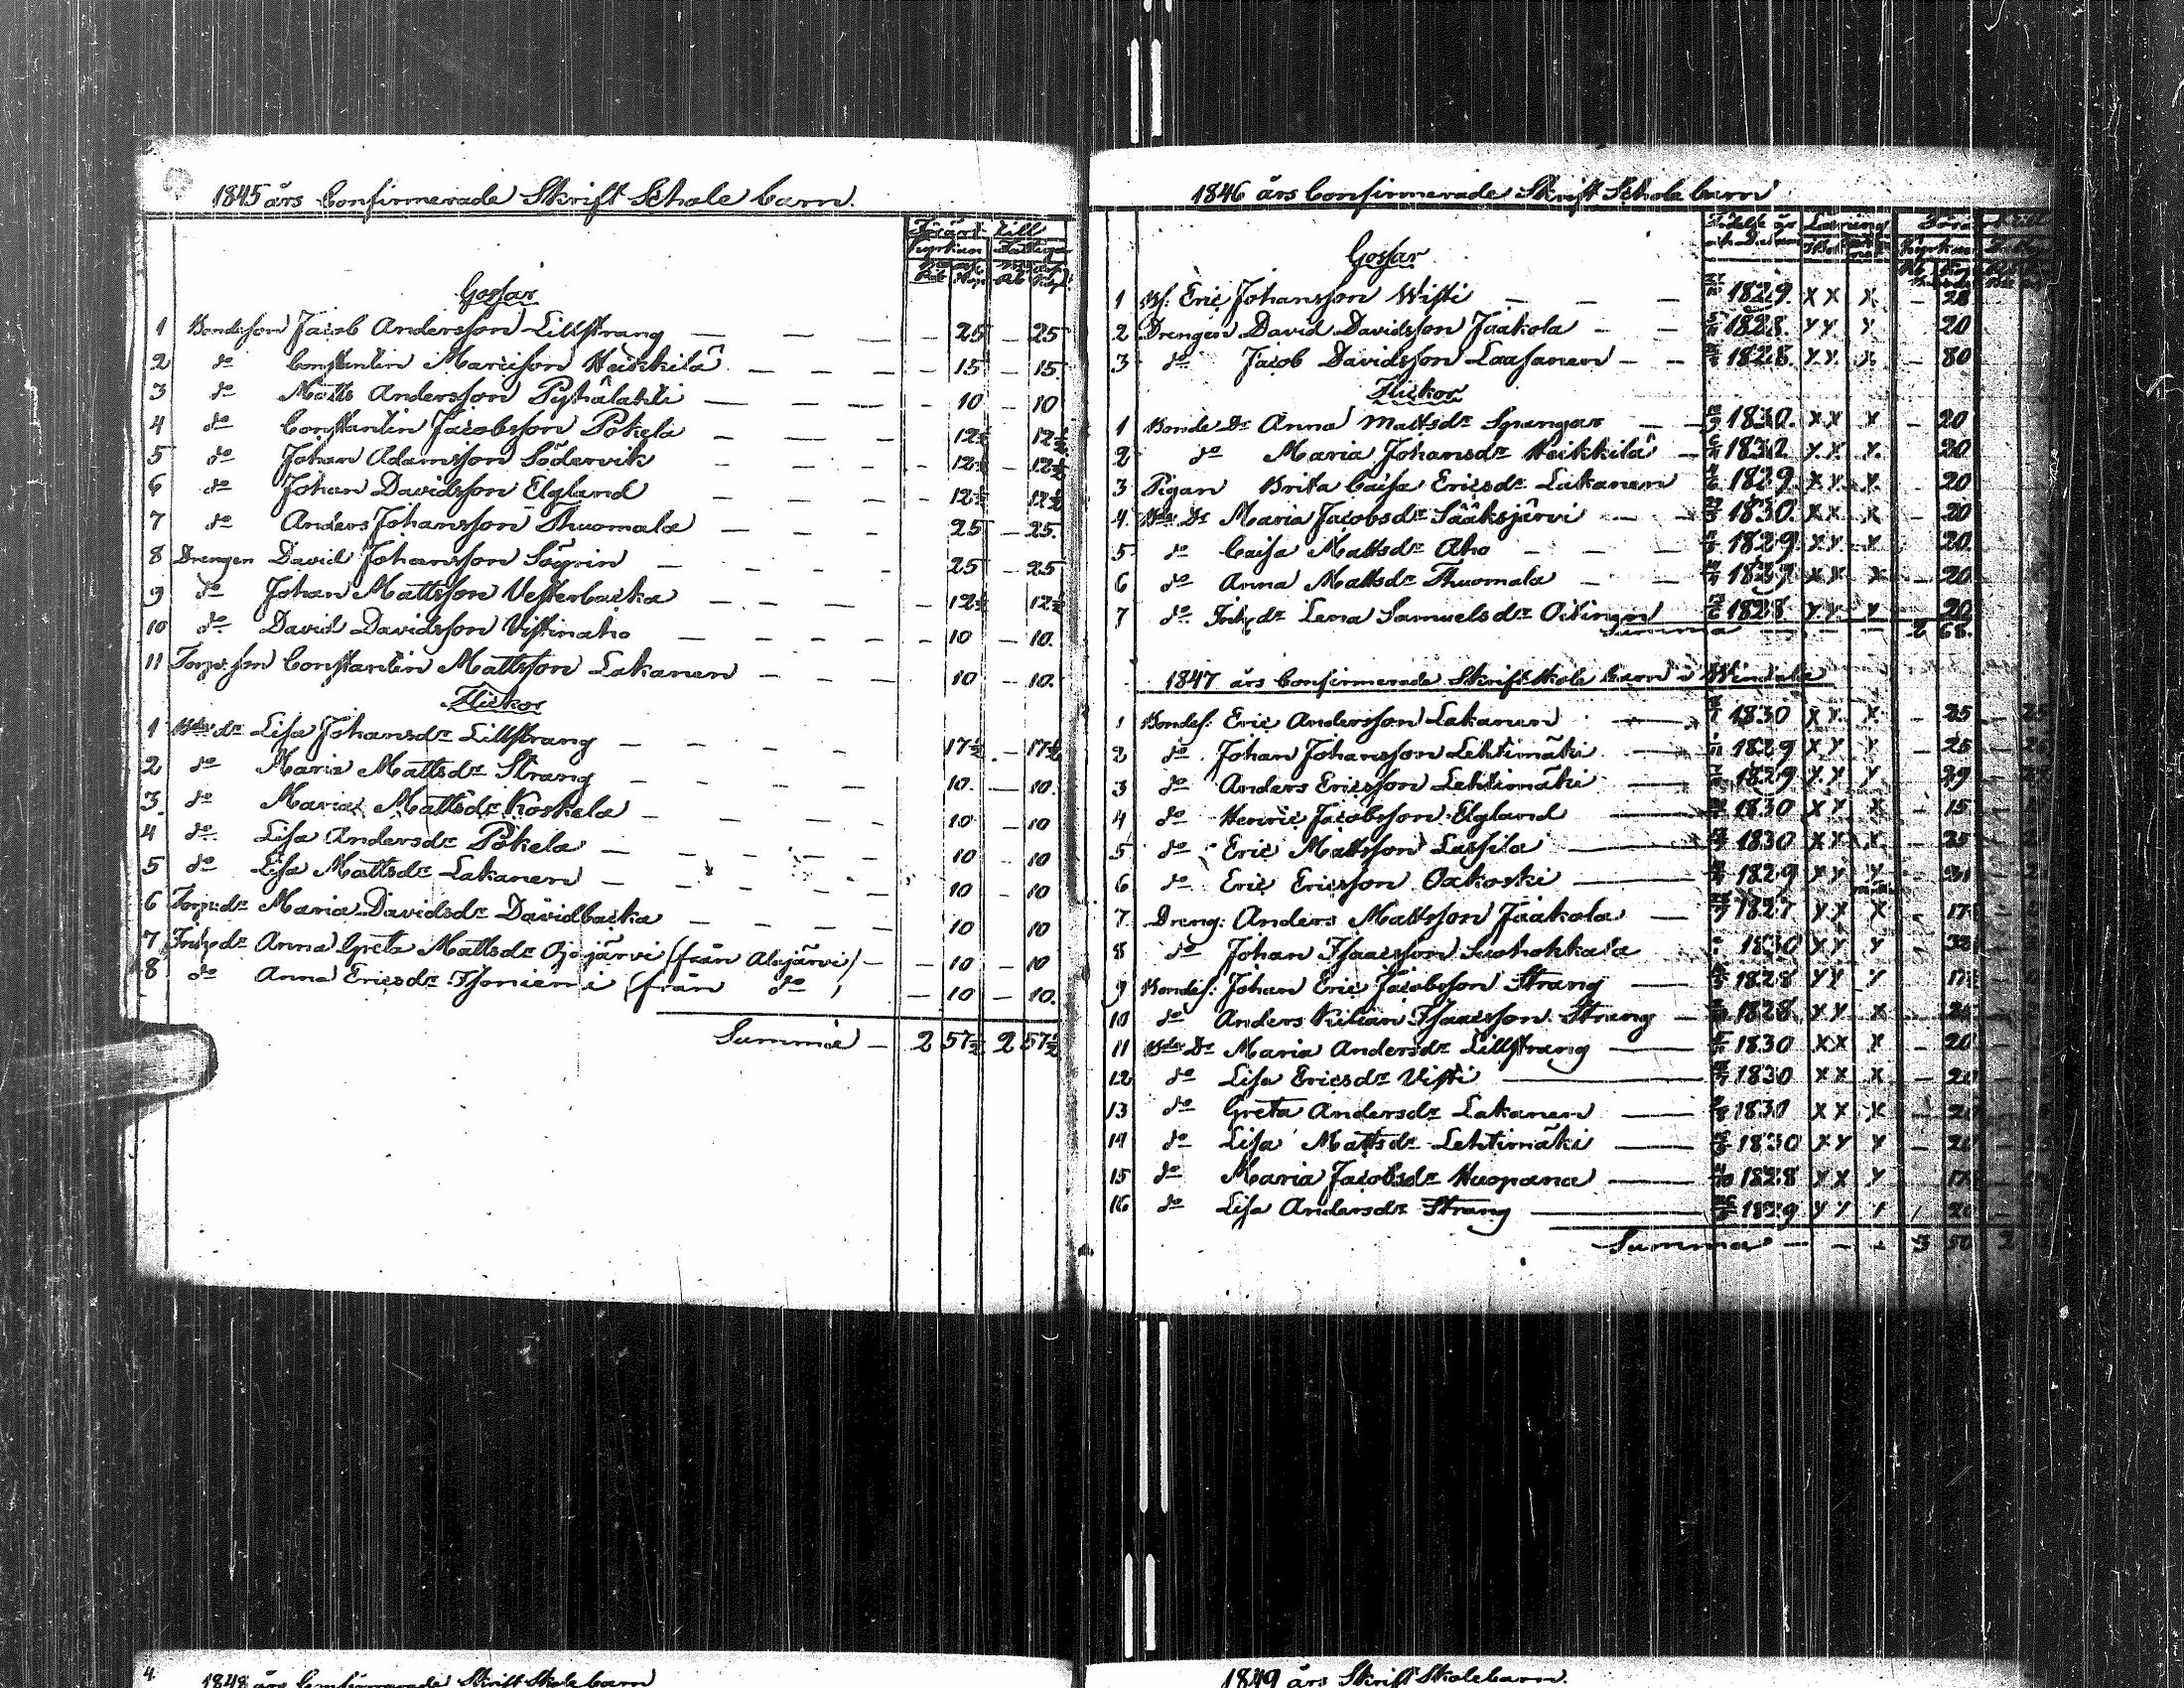 1845 års Confirmerade Skrift Schole barn.
Förärt till
Kyrkan Fattiga
Gossar
1 Bondesson Jacob Andersson Lillstrang — — — — 25 — 25
2 do Constantin Marcisson Heikkilâ — — — — 15 — 15.
3 do Matts Andersson Pyhâlahti — — — — 10 — 10
4 do Constantin Jacobsson Pokela — — — 12½ 12½
5 do Johan Adamsson Södervik — — — — 12½ — 12½
6 do Johan Davidsson Elgland — — — — 12½ 12½
7 do Anders Johansson Thuomala — — — 25 — 25.
8 Drengen David Johansson Sögrin — — — 25 — 25
9 do Johan Mattsson Vesterbacka — — — — 12½ 12½
10 do David Davidsson Vistinaho — — — — 10 — 10.
11 Torp. son Constantin Mattsson Lakanen — — — 10 — 10.
Flickor
1 dr Lisa Johansdr Lillstrang — — — 17½ — 17½
2 do Maria Mattsdr Strang — — — 10. — 10.
3 do Maria Mattsdr Koskela — — — 10 — 10
4 do Lisa Andersdr Pokela — — — 10 — 10
5 do Lisa Mattsdr Lakanen — — — 10 — 10
6 Torp. dr Maria Davidsdr Davidbacka — — — 10 10
7 Inh. dr Anna Greta Mattsdr Ojajärvi (från Alajärvi) — — 10 — 10
8 do Anna Ericsdr Isoniemi (från do ) — 10 — 10.
Summa — 2 57½ 2 57½
1846 års Confirmerade Skrift Schole barn
Gossar
1 Bs: Eric Johansson Wisti — — — 1829 X X X — 28
2 Drengen David Davidsson Jaakola — — 1828. X X X 20
3 do Jacob Davidsson Laasanen — — 1828. X X X — 80
Flickor
1 Bonde Dr Anna Mattsdr Spangar — 1830. X X X — 20
2 do Maria Johansdr Heikkilâ — 1830 X X X 20
3 Pigan Brita Caisa Ericsdr Lakanen 1829. X X X — 20
4. Dr Maria Jacobsdr Sââksjârvi — — 1830. X X X — 20
5 do Caisa Mattsdr Aho — — 1829. X X X 20.
6 do Anna Mattsdr Thuomala — — X X X — 20
7 do Inh. dr Lena Samuelsdr Oitinen 1828 X X X — 20
Summa — — — 2 68.
1847 års Confirmerade Skriftskole barn i Windala
1 Bondes: Eric Andersson Lakanen — 1830 X X X — 25 — 25
2 do Johan Johansson Lehtimäki — 1829 X X X — 25
3 do Anders Ericsson Lehtimäki — 1829 X X X
4 do Henric Jacobsson Elgland — 1830 X X X — 15
5 do Eric Mattsson Lassila — 1830 X X X — 25
6 do Eric Ericsson Oxakoski — 1829 X X X
7 Dreng: Anders Mattsson Jaakola — 1827 X X X — 17
8 do Johan Isacsson Suohohkala 1830 X X X
9 Bondes: Johan Eric Jacobsson Strang — 1828 X X X
10 do Anders Kilian Isaacsson Strang — 1828. X X X
11 Dr Maria Andersdr Lillstrang — 1830 X X X — 20
12 do Lisa Ericsdr Visti — 1830 X X X — 20
13 do Greta Andersdr Lakanen — 1830 X X X — 20
14 do Lisa Mattsdr Lehtimäki — 1830 X X X — 20
15 do Maria Jacobsdr Huopana — 1828 X X X
16 do Lisa Andersdr Strang — 1829 X X X 20
Summa — — — 3 50 2
4. 1848 års Confirmerade Skrift Skole barn
1849 års Skrift Skolebarn.